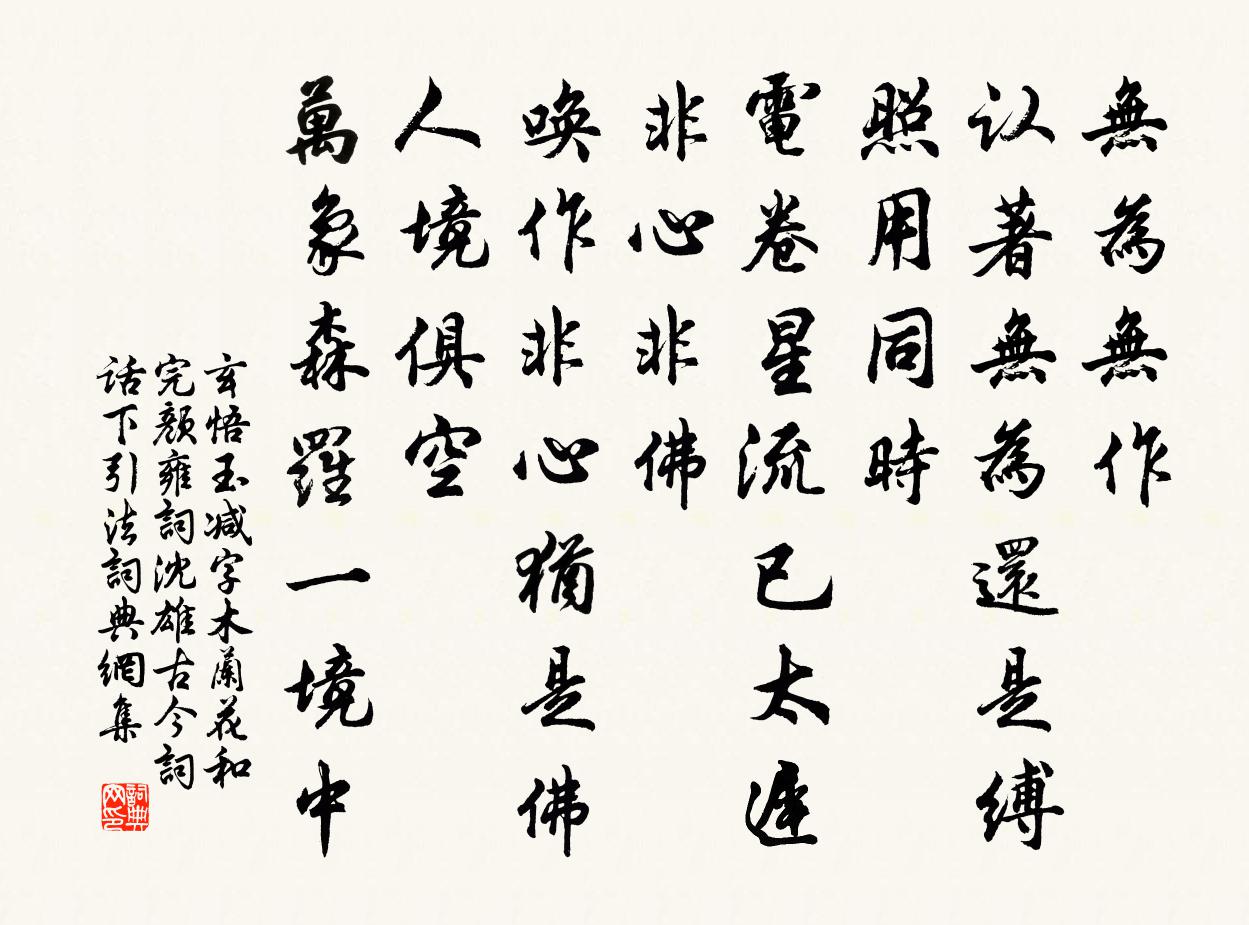 無為無作
认著無為還是縛
照用同時
電卷星流已太遲
非心非佛
喚作非心猶是佛
人境俱空
萬象森羅一境中
玄悟玉减字木蘭花和
完顏雍詞沈雄古今詞
话下引法詞典網集
詞典网印